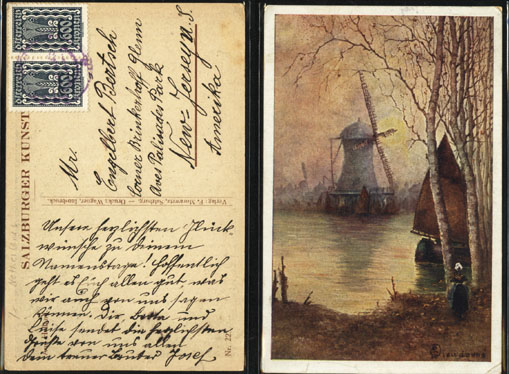 Österreich
600
Österreich
600
SALZBURGER KUNST
Verlag: F. Morawetz, Salzburg. — Druck: Wagner, Innsbruck.
Nr. 22
Mr.
Engelbert Bertsch
Corner Brinkerhoff Glenn
Aves Palisades Park
New-Jersey N. S.
Amerika
Unsere herzlichsten Glück-
wünsche zu deinem
Namenstage! Hoffentlich
geht es Euch allen gut was
wir auch von uns sagen
können. Dir, Berta und
Luise sendet die herzlichsten
Grüße von uns allen
Dein treuer Bruder Josef